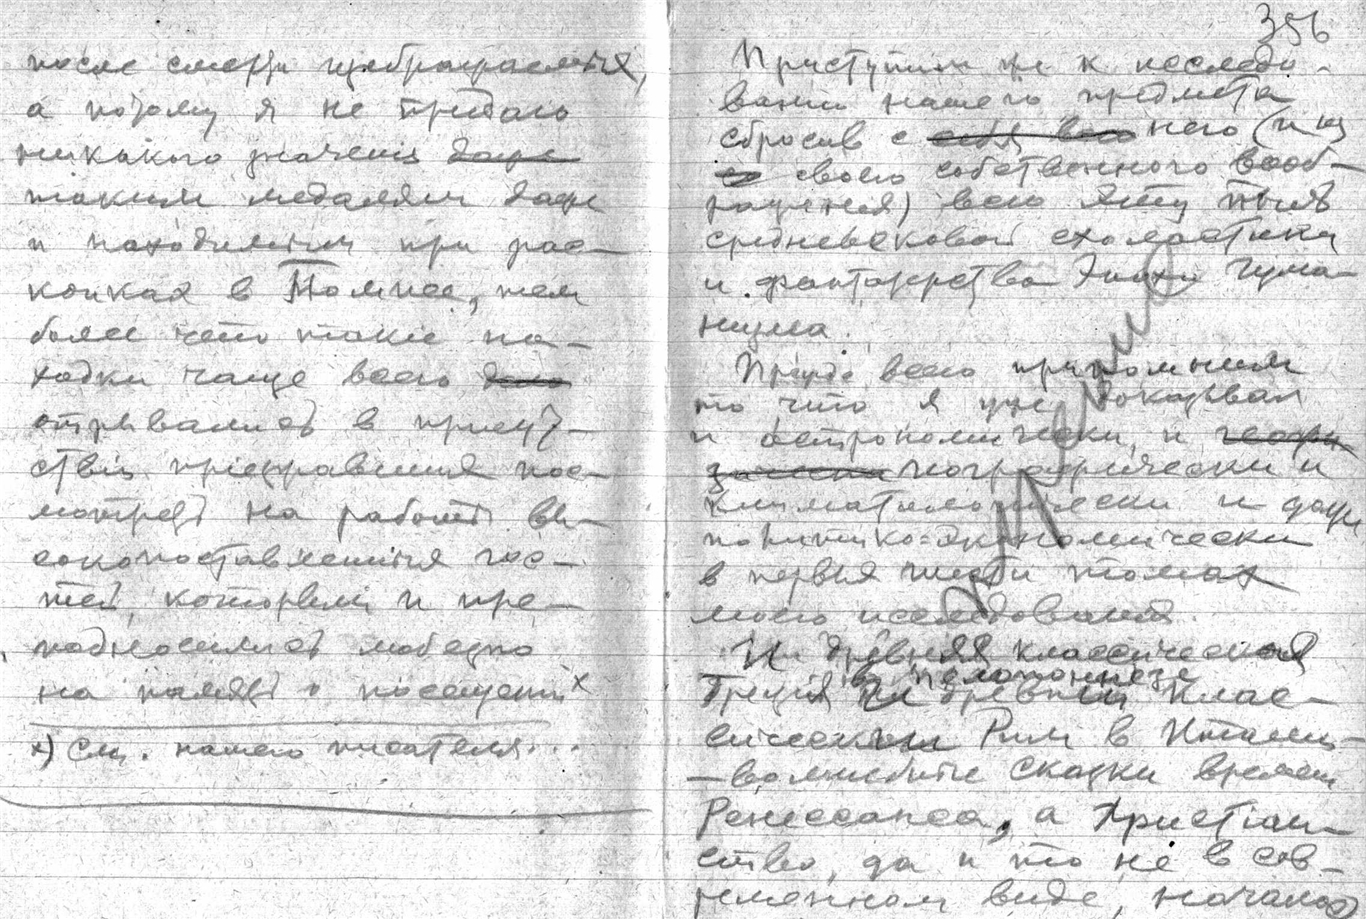 после смерти изображаемых,
а потому я не придаю
никакого значения даже
таким медалям даже
и находимым при рас-
копках в Помпее, тем
более что такие на-
ходки чаще всего
открывались в присут-
ствии приехавших пос-
мотреть на работы вы-
сокопоставленных гос-
тей, которым и пре-
подносились любезно
на память о посещении x
x) См. нашего писателя...
356
Приступим же к исследо-
ванию нашего предмета
сбросив с себя всю него (и из
со своего собственного вооб-
ражения) всю эту пыль
средневековой схоластики
и фантазерства Эпохи Гума-
низма.
Прежде всего припомним
то что я уже доказывал
и астрономически, и геогра
и географически и
климатологически и даже
политико-экономически
в первых шести томах
моего исследования.
И древняя классическая
Греция в Пелопоннезе и древний клас-
сический Рим в Италии-
- волшебные сказки времен
Ренессанса, а Христиан-
ство, да и то не в сов-
ременном виде, начало